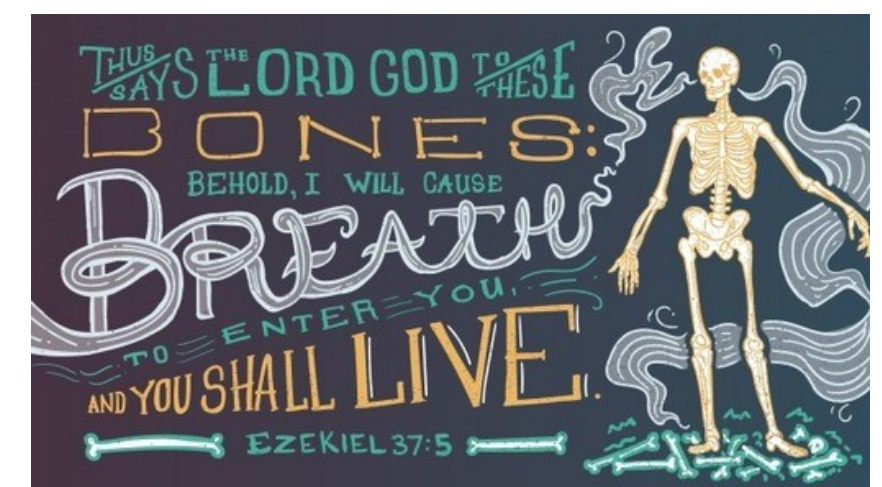 THUS SAYS THE LORD GOD TO THESE
BONES:
BEHOLD, I WILL CAUSE
BREATH
TO ENTER YOU,
AND YOU SHALL LIVE.
EZEKIEL 37:5